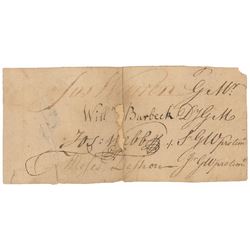 Jos Warren G Mr.
Will Burbeck Dy G M
Jos: Webb S G W protem
Moses Deshon J G W protem